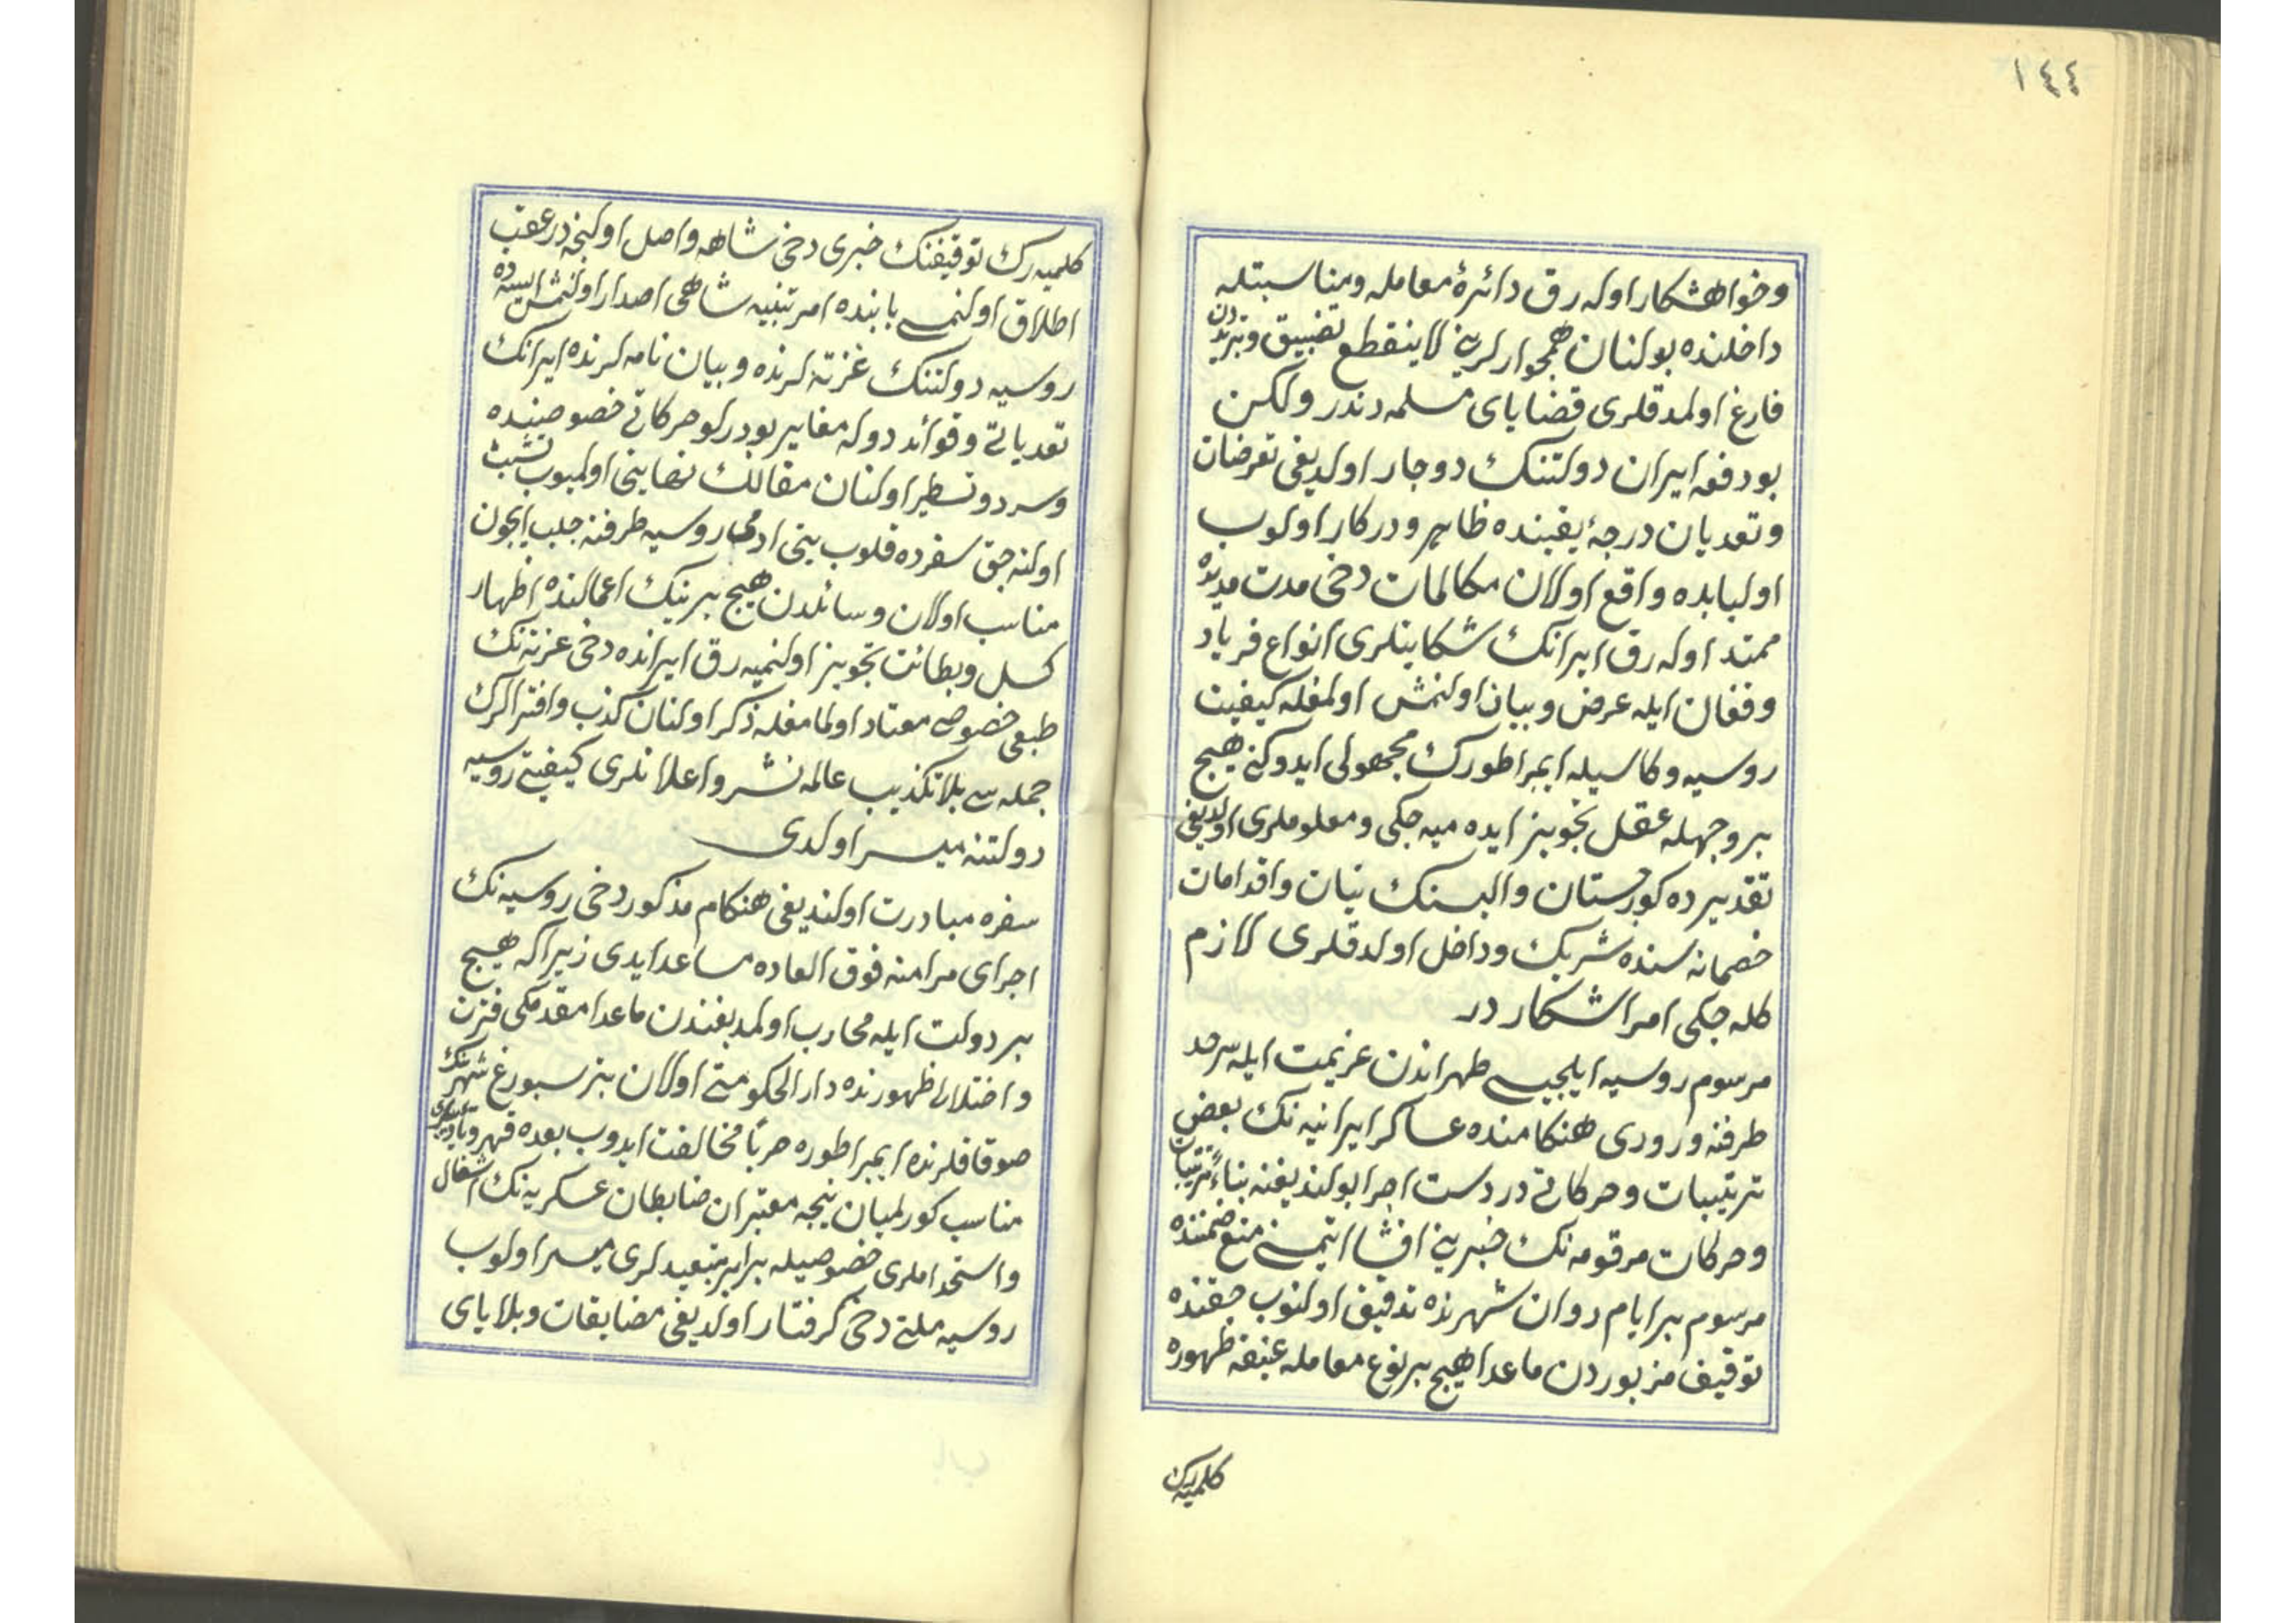 ١٤٤
وخواهشكار اوله رق دائرهٔ معامله ومناسبتله
داخلنده بولنان همجوارلرينى لاينقطع تضييق وتبريددن
فارغ اولمدقلرى قضاياى مسلمه دندر ولكن
بودفعه ايران دولتنك دوچار اولديغى تعرضات
وتعديات درجهٔ يقينده ظاهر ودركار اولوب
اولبابده واقع اولان مكالمات دخى مدت مديده
ممتد اوله رق ايرانك شكايتلرى انواع فرياد
وفغان ايله عرض وبيان اولنمش اولمغله كيفيت
روسيه وكلاسيله ايمپراطورك مجهولى ايدوكنى هيچ
بر وجهله عقل تجويز ايده ميه جكى ومعلوملرى اولديغى
تقديرده كورجستان واليسنك نيات واقدامات
خصمانه سنده شريك وداخل اولدقلرى لازم
كله جكى امر اشكاردر
مرسوم روسيه ايلچيسى طهراندن عزيمت ايله سرحد
طرفنه ورودى هنكامنده عساكر ايرانيه نك بعض
ترتيبات وحركاتى دردست اجرا بولنديغنه بناءً ترتيبات
وحركات مرقومه نك خبرينى افشا ايتمسنى منع ضمننده
مرسوم بر ايام روان شهرنده توقيف اولنوب حقنده
توقيف مزبوردن ماعدا هيچ بر نوع معامله عنيفه ظهوره
كلميه رك
كلميه رك توقيفنك خبرى دخى شاهه واصل اولنجه درعقب
اطلاق اولنمسى بابنده امر تنبيه شاهى اصدار اولنمش ايسه ده
روسيه دولتنك غزته لرنده وبيان نامه لرنده ايرانك
تعدياتى وقوائد دوله مغاير بودرلو حركاتى خصوصنده
وسرد وتسطير اولنان مقالك نهايتى اولميوب تشبث
اولنه جق سفرده قلوب بنى ادمى روسيه طرفنه جلب ايچون
مناسب اولان وسائلدن هيچ برينك اعمالنده اظهار
كسل وبطائت تجويز اولنميه رق ايرانده دخى غزته نك
طبعى خصوصى معتاد اولمامغله ذكر اولنان كذب وافترالرك
جمله سى بلا تكذيب عالمه نشر واعلانلرى كيفيتى روسيه
دولتنه ميسر اولدى
سفره مبادرت اولنديغى هنكام مذكور دخى روسيه نك
اجراى مرامنه فوق العاده مساعد ايدى زيراكه هيچ
بر دولت ايله محارب اولمديغندن ماعدا مقدمكى فتن
واختلال ظهورنده دار الحكومتى اولان پترسبورغ شهرينك
صوقاقلرنده ايمپراطوره حرباً مخالفت ايدوب بعده قهر وتأديبلرى
مناسب كورلميان نيجه معتبران ضابطان عسكريه نك اشغال
واستخداملرى خصوصيله برابر تبعيدلرى ميسر اولوب
روسيه ملتى دخى كرفتار اولديغى مضايقات وبلاياى